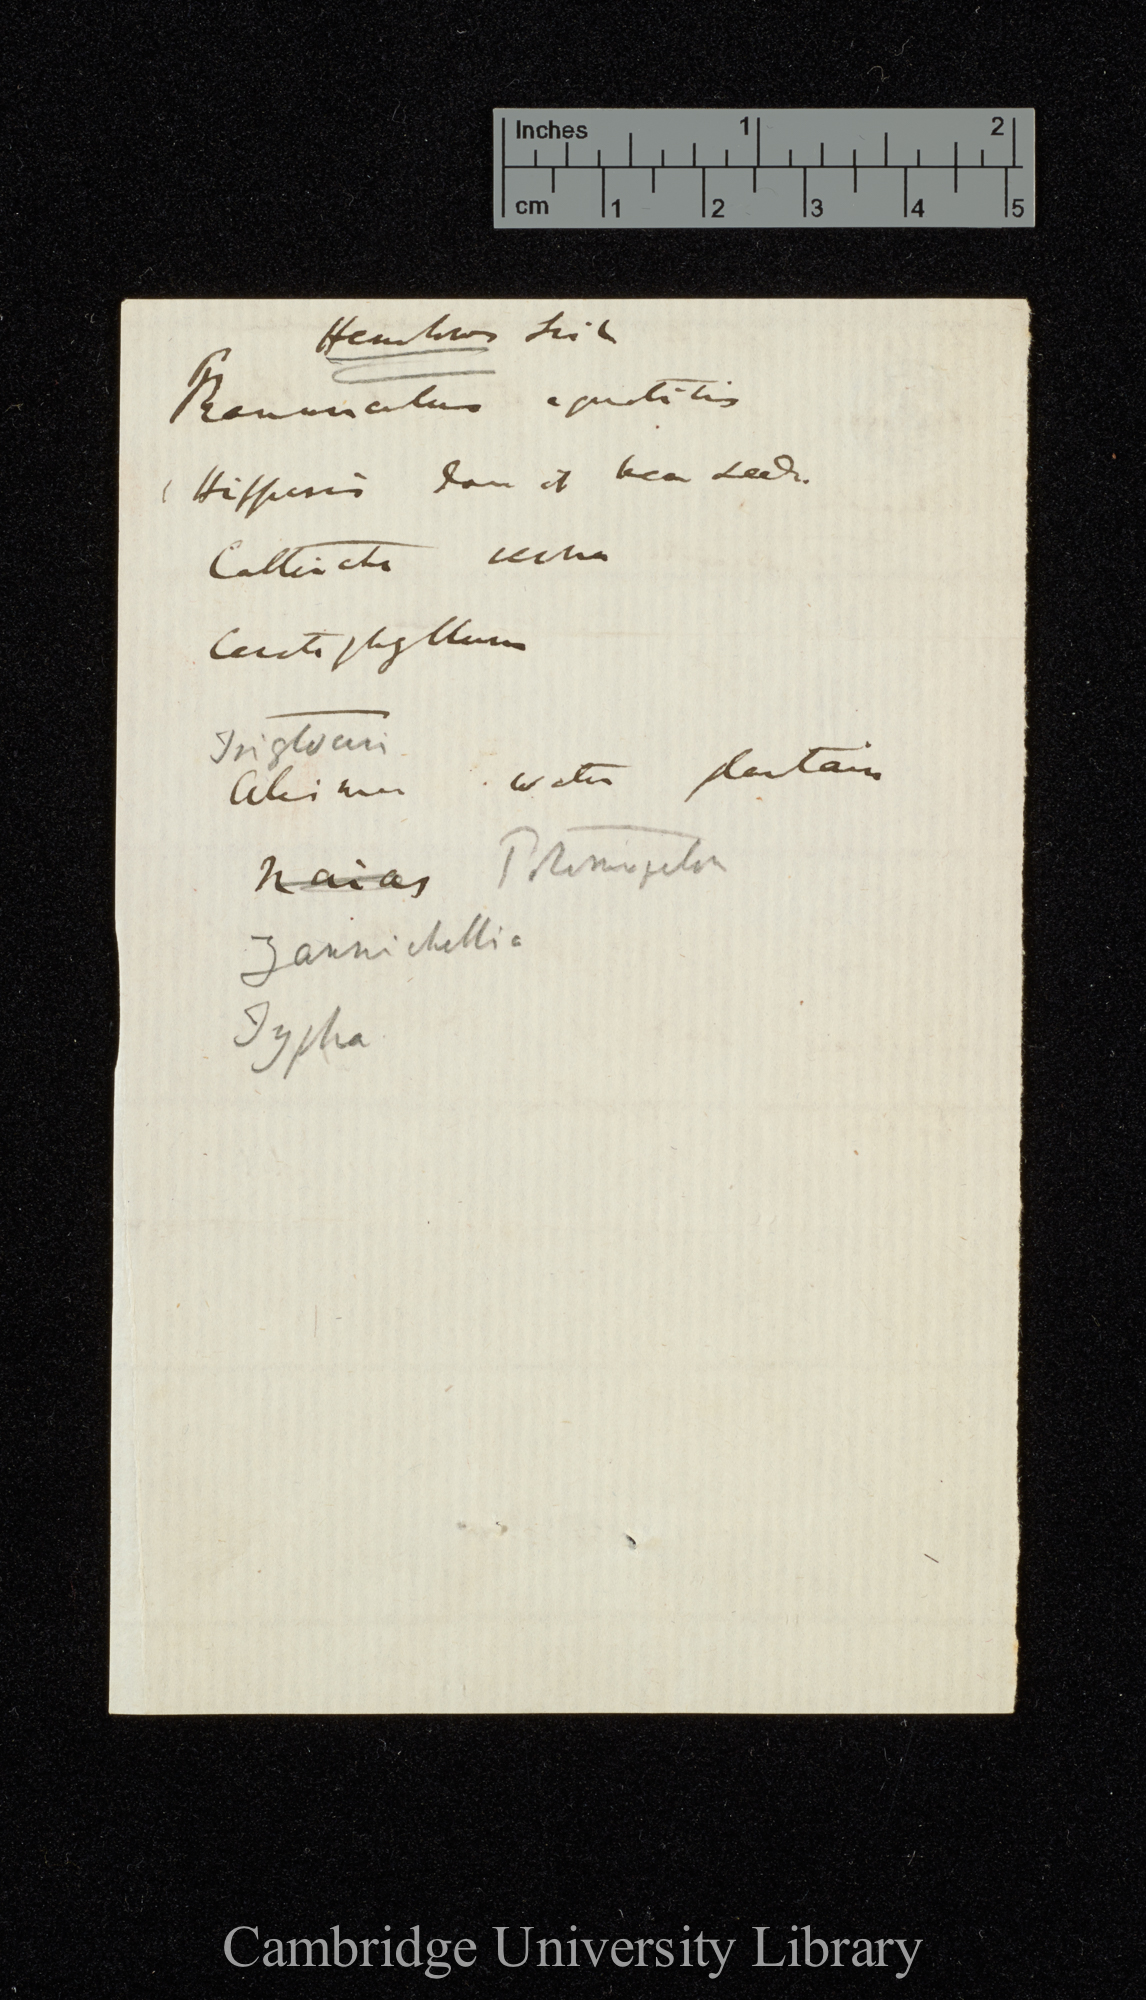 Inches 1 2
cm 1 2 3 4 5
Henslows List
Ranunculus aquatilis
Hippuris does it bear seeds.
Callitriche verna
Ceratophyllum
Triglochin
Alisma water plantain
Naias Potamogeton
Zannichellia
Typha
Cambridge University Library